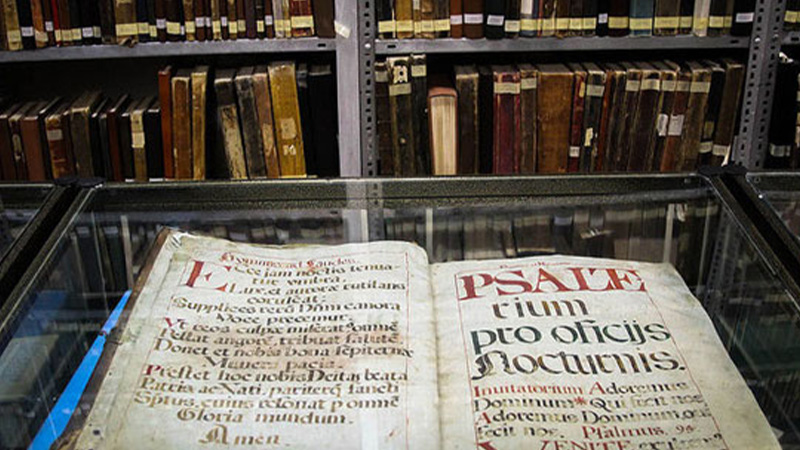 Hymnus ad Laudes.
Ecce jam noctis tenua-
tur umbra
Lux et auroræ rutilans
coruscat:
Supplices rerū Dñm canora
Voce precemur:
Vt reos culpæ miseratꝰ omnē
Pellat angorē, tribuat salutē
Donet et nobis bona sēpiternæ
Munera pacis.
Præstet hoc nobis Deitas beata
Patris ac Nati, pariterq; sancti
Sp̄tus, cuius resonat p omnē
Gloria mundum.
Amen.
PSALTE
rium
pro officijs
Nocturnis.
Inuitatorium Adoremus
Dominum * Qui fecit nos
Adoremus Dominum
fecit nos. Psalmus. 94.
VENITE